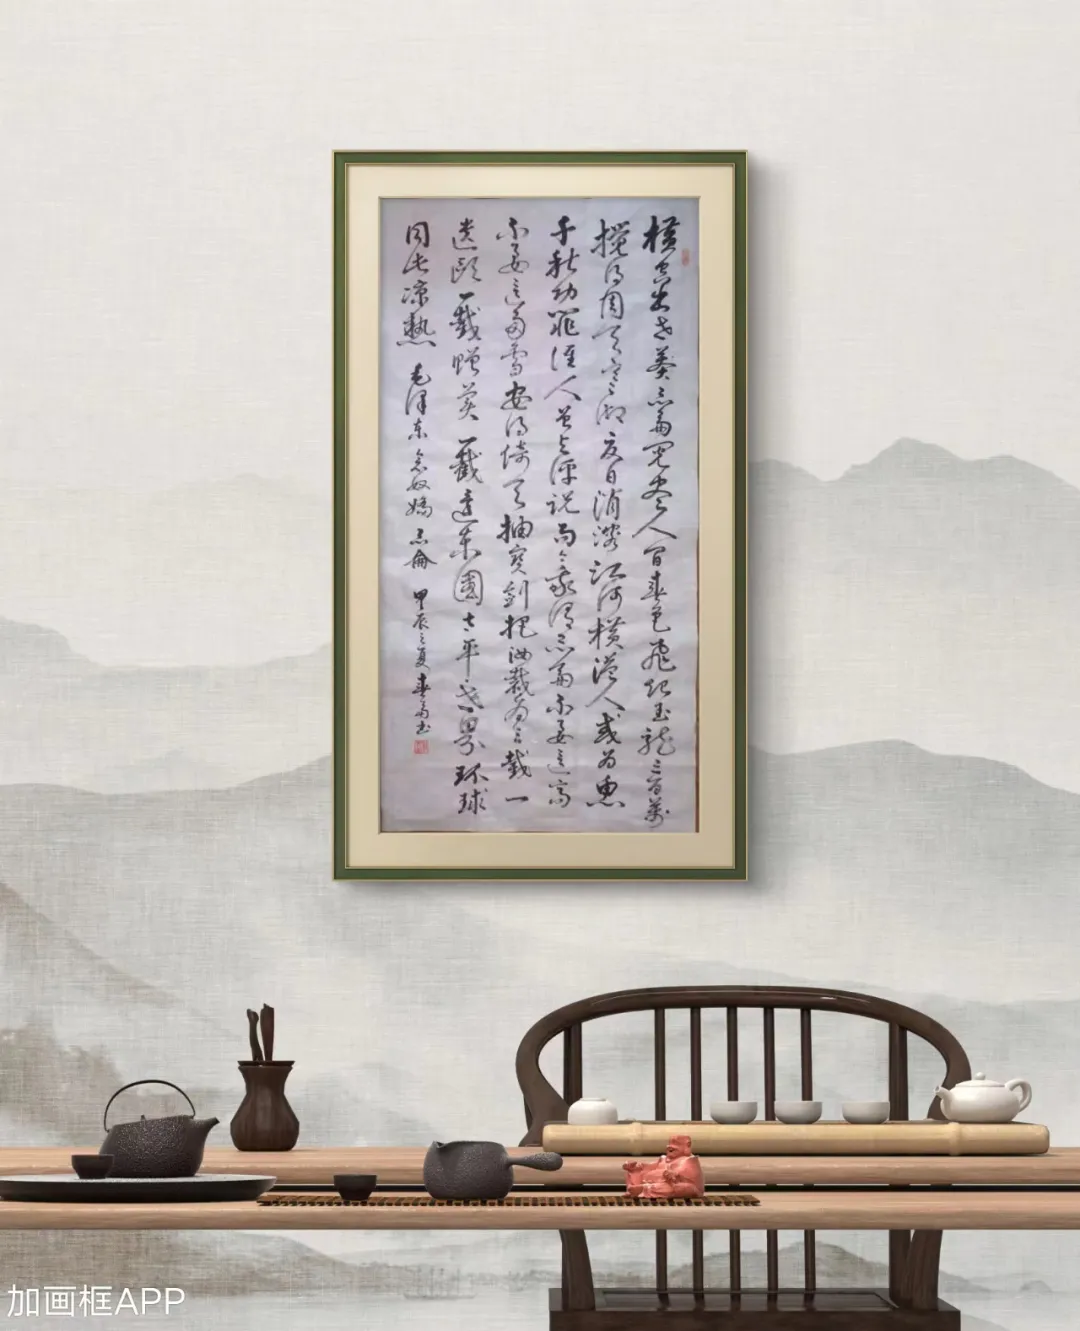 横空出世莽昆仑阅尽人间春色飞起玉龙三百万
搅得周天寒彻夏日消溶江河横溢人或为鱼
千秋功罪谁人曾与评说而今我谓昆仑不要这高
不要这多雪安得倚天抽宝剑把汝裁为三截一
遗欧一截赠美一截还东国太平世界环球
同此凉热 毛泽东念奴娇昆仑 甲辰之夏春书
加画框APP